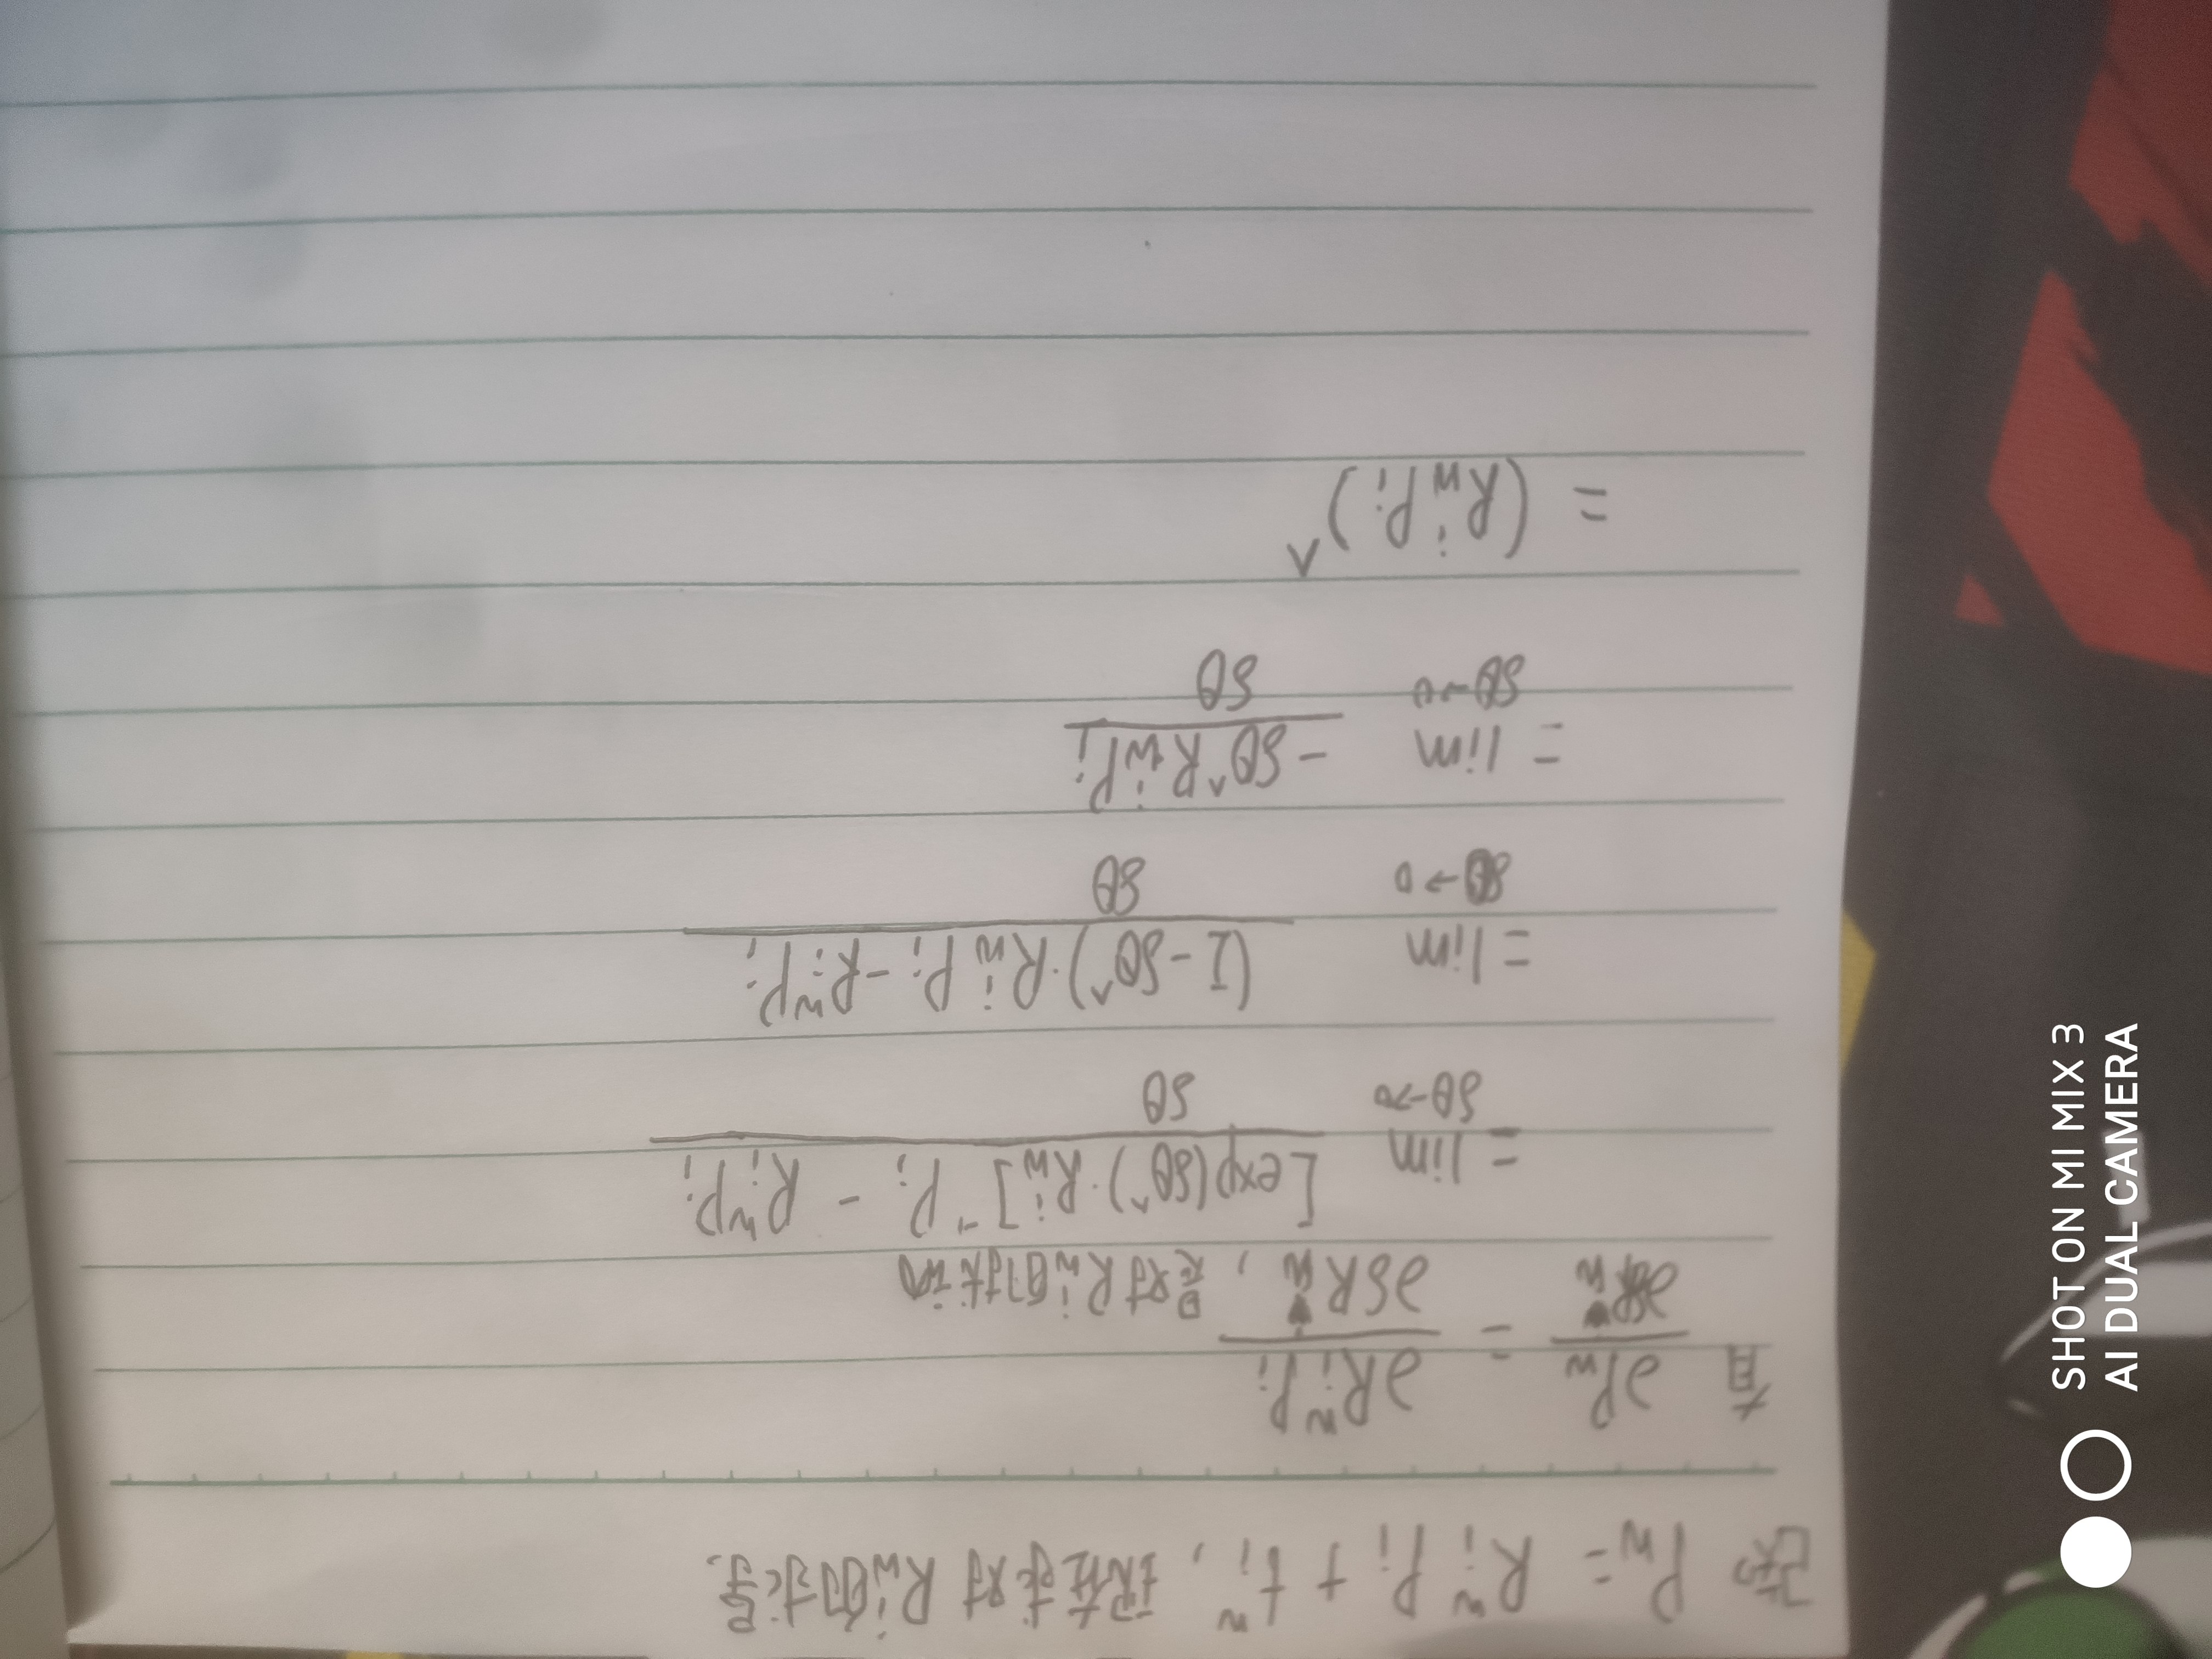 已知 P_w = R_i^w P_i + t_i^w , 现在求对 R_w^i 的求导.
有 ∂P_w / ∂ = ∂R_i^w P_i / ∂δR_w , 是对 R_w^i 的扰动
= lim_{δθ→0} [exp(δθ^)·R_w^i]^{-1} P_i - R_i^w P_i / δθ
= lim_{δθ→0} (I - δθ^)·R_w^i P_i - R_i^w P_i / δθ
= lim_{δθ→0} -δθ^ R_w^i P_i / δθ
= (R_w^i P_i)^
SHOT ON MI MIX 3
AI DUAL CAMERA